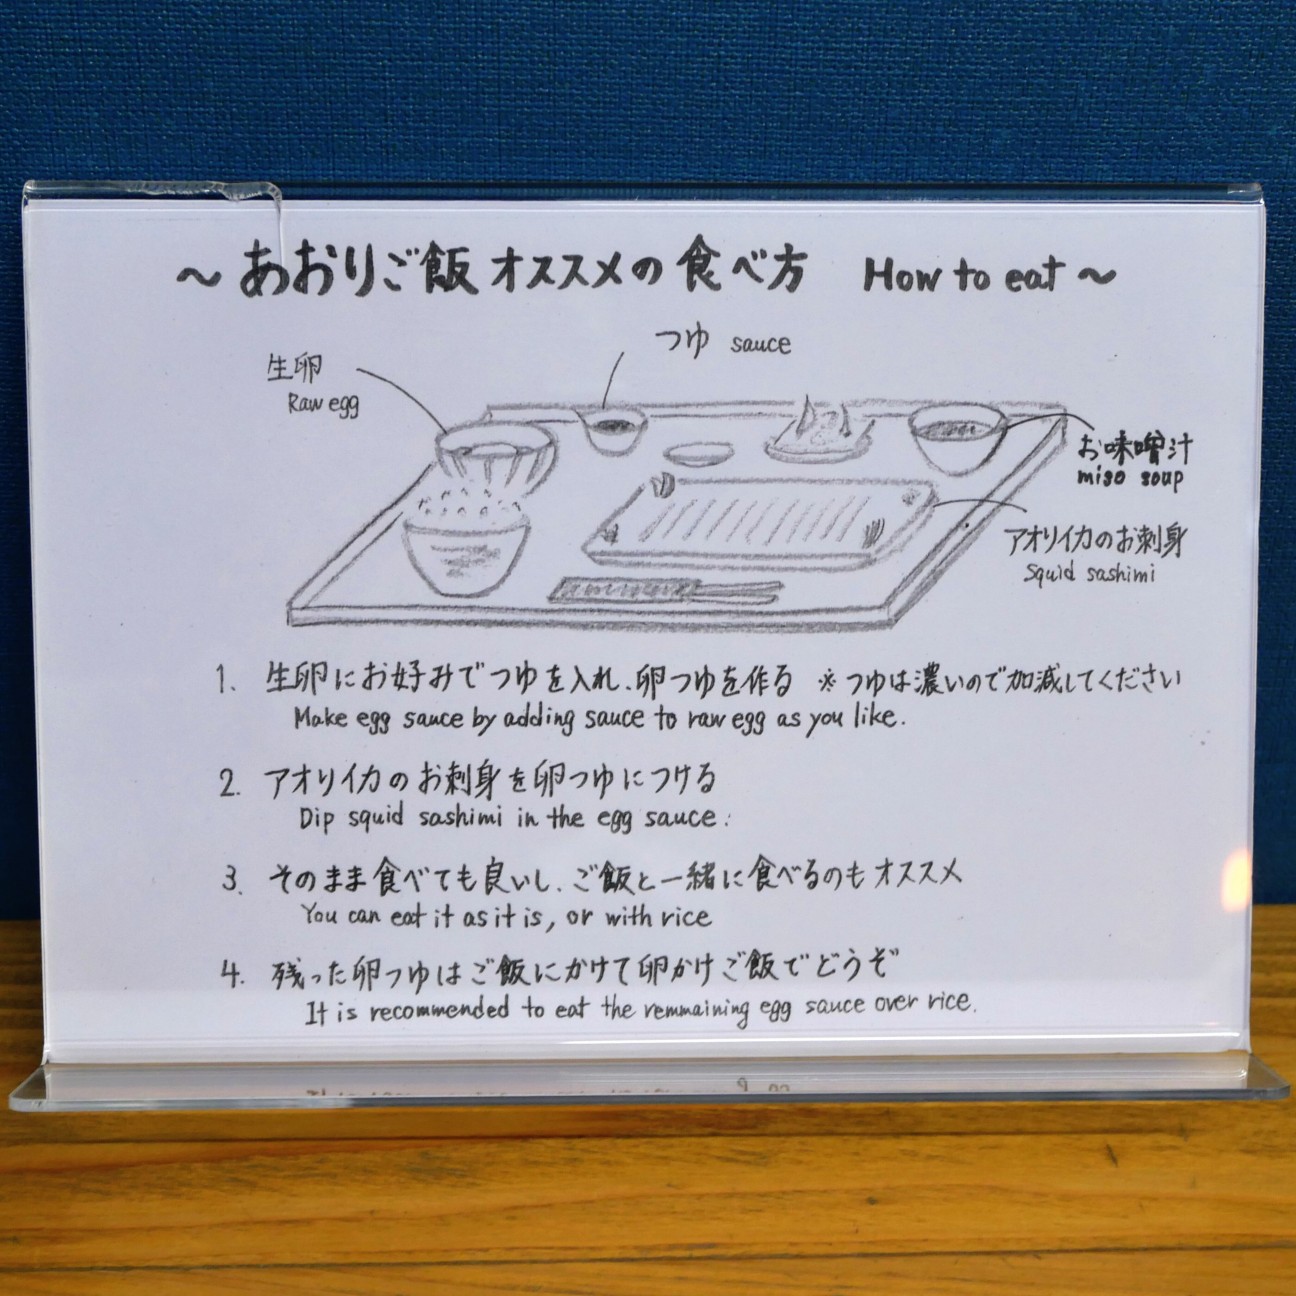 ～あおりご飯 オススメの食べ方 How to eat～
つゆ sauce
生卵
Raw egg
お味噌汁
miso soup
アオリイカのお刺身
Squid sashimi
1. 生卵にお好みでつゆを入れ、卵つゆを作る ※つゆは濃いので加減してください
Make egg sauce by adding sauce to raw egg as you like.
2. アオリイカのお刺身を卵つゆにつける
Dip squid sashimi in the egg sauce.
3. そのまま食べても良いし、ご飯と一緒に食べるのもオススメ
You can eat it as it is, or with rice
4. 残った卵つゆはご飯にかけて卵かけご飯でどうぞ
It is recommended to eat the remmaining egg sauce over rice.